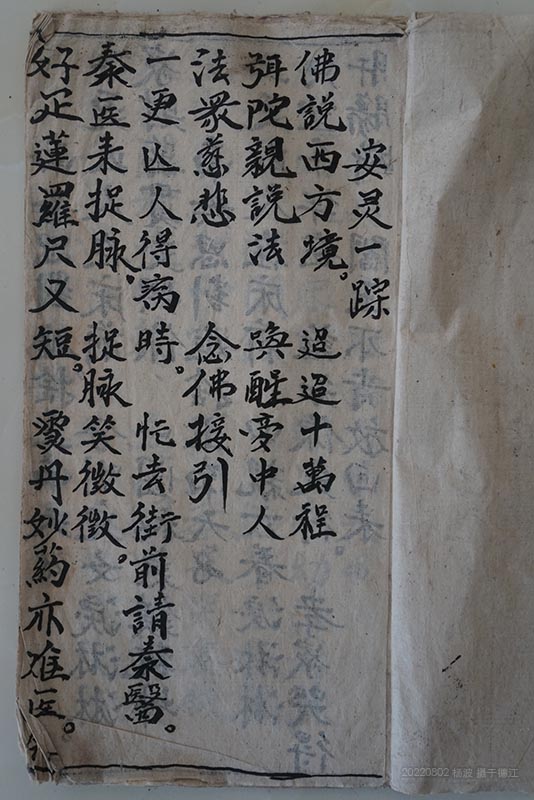 安灵一踪
佛說西方境。 迢迢十萬程
弭陀親說法 喚醒夢中人
法眾慈悲 念佛接引
一更亾人得病時。 忙去街前請泰醫。
泰医来捉脉。捉脉笑微微。
好疋蓮羅尺又短。 霊丹妙葯亦难医。
20220802 杨波 摄于德江